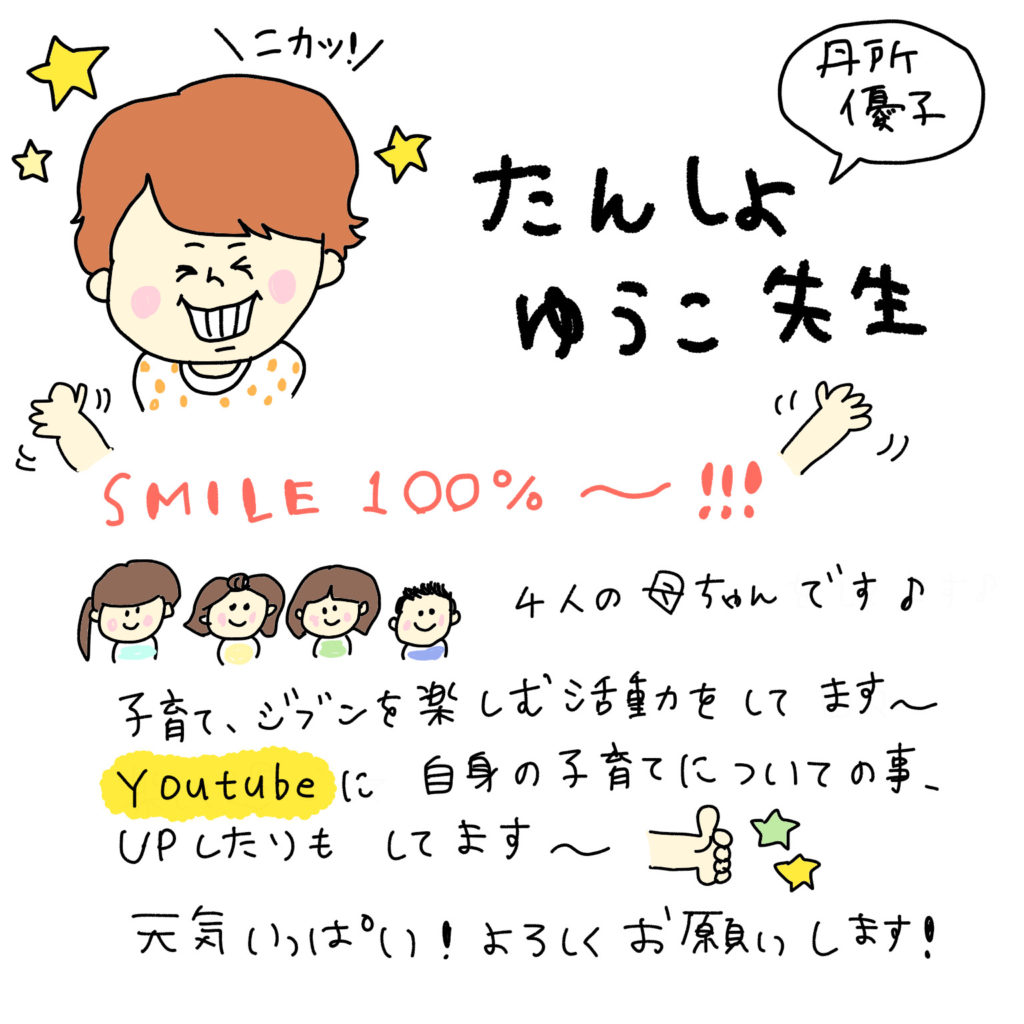 \ニカッ!/
丹所
優子
たんしょ
ゆうこ先生
SMILE 100% 〜 !!!
4人の母ちゃんです♪
子育て、ジブンを楽しむ活動をしてます〜
Youtubeに 自身の子育てについての事、
UPしたりも してます〜
元気いっぱい!よろしくお願いします!